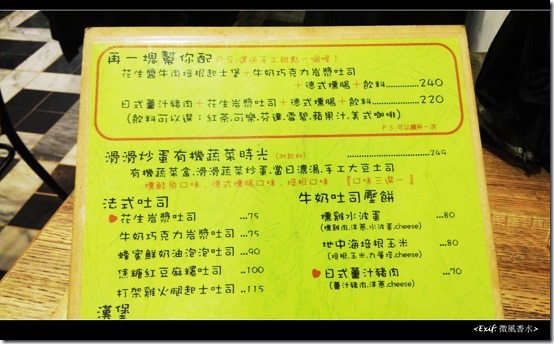 再一塊幫你配 P.S:還送手工甜點一個喔！
花生醬牛肉培根起士堡+牛奶巧克力岩漿吐司
+德式燻腸+飲料..............240
日式薑汁豬肉+花生岩漿吐司+德式燻腸+飲料..............220
(飲料可以選：紅茶.可樂.芬達.雪碧.蘋果汁.美式咖啡)
P.S.可以續杯一次
滑滑炒蛋有機蔬菜時光(附飲料)..............249
有機蔬菜盒.滑滑蔬菜炒蛋.當日濃湯.手工大豆土司
燻鮭魚口味．德式燻腸口味．培根口味 『口味三選一』
法式吐司
花生岩漿吐司 ...75
牛奶巧克力岩漿吐司 ...75
蜂蜜鮮奶油泡泡吐司 ...90
焦糖紅豆麻糬吐司 ..100
打架雞火腿起士吐司 ..115
漢堡
牛奶吐司壓餅
燻雞水波蛋 ...80
(燻雞肉.洋蔥.水波蛋.cheese)
地中海培根玉米 ...80
(培根.玉米.九層塔.cheese)
日式薑汁豬肉 ...70
(薑汁豬肉.洋蔥.cheese)
<Exif: 微風香水>